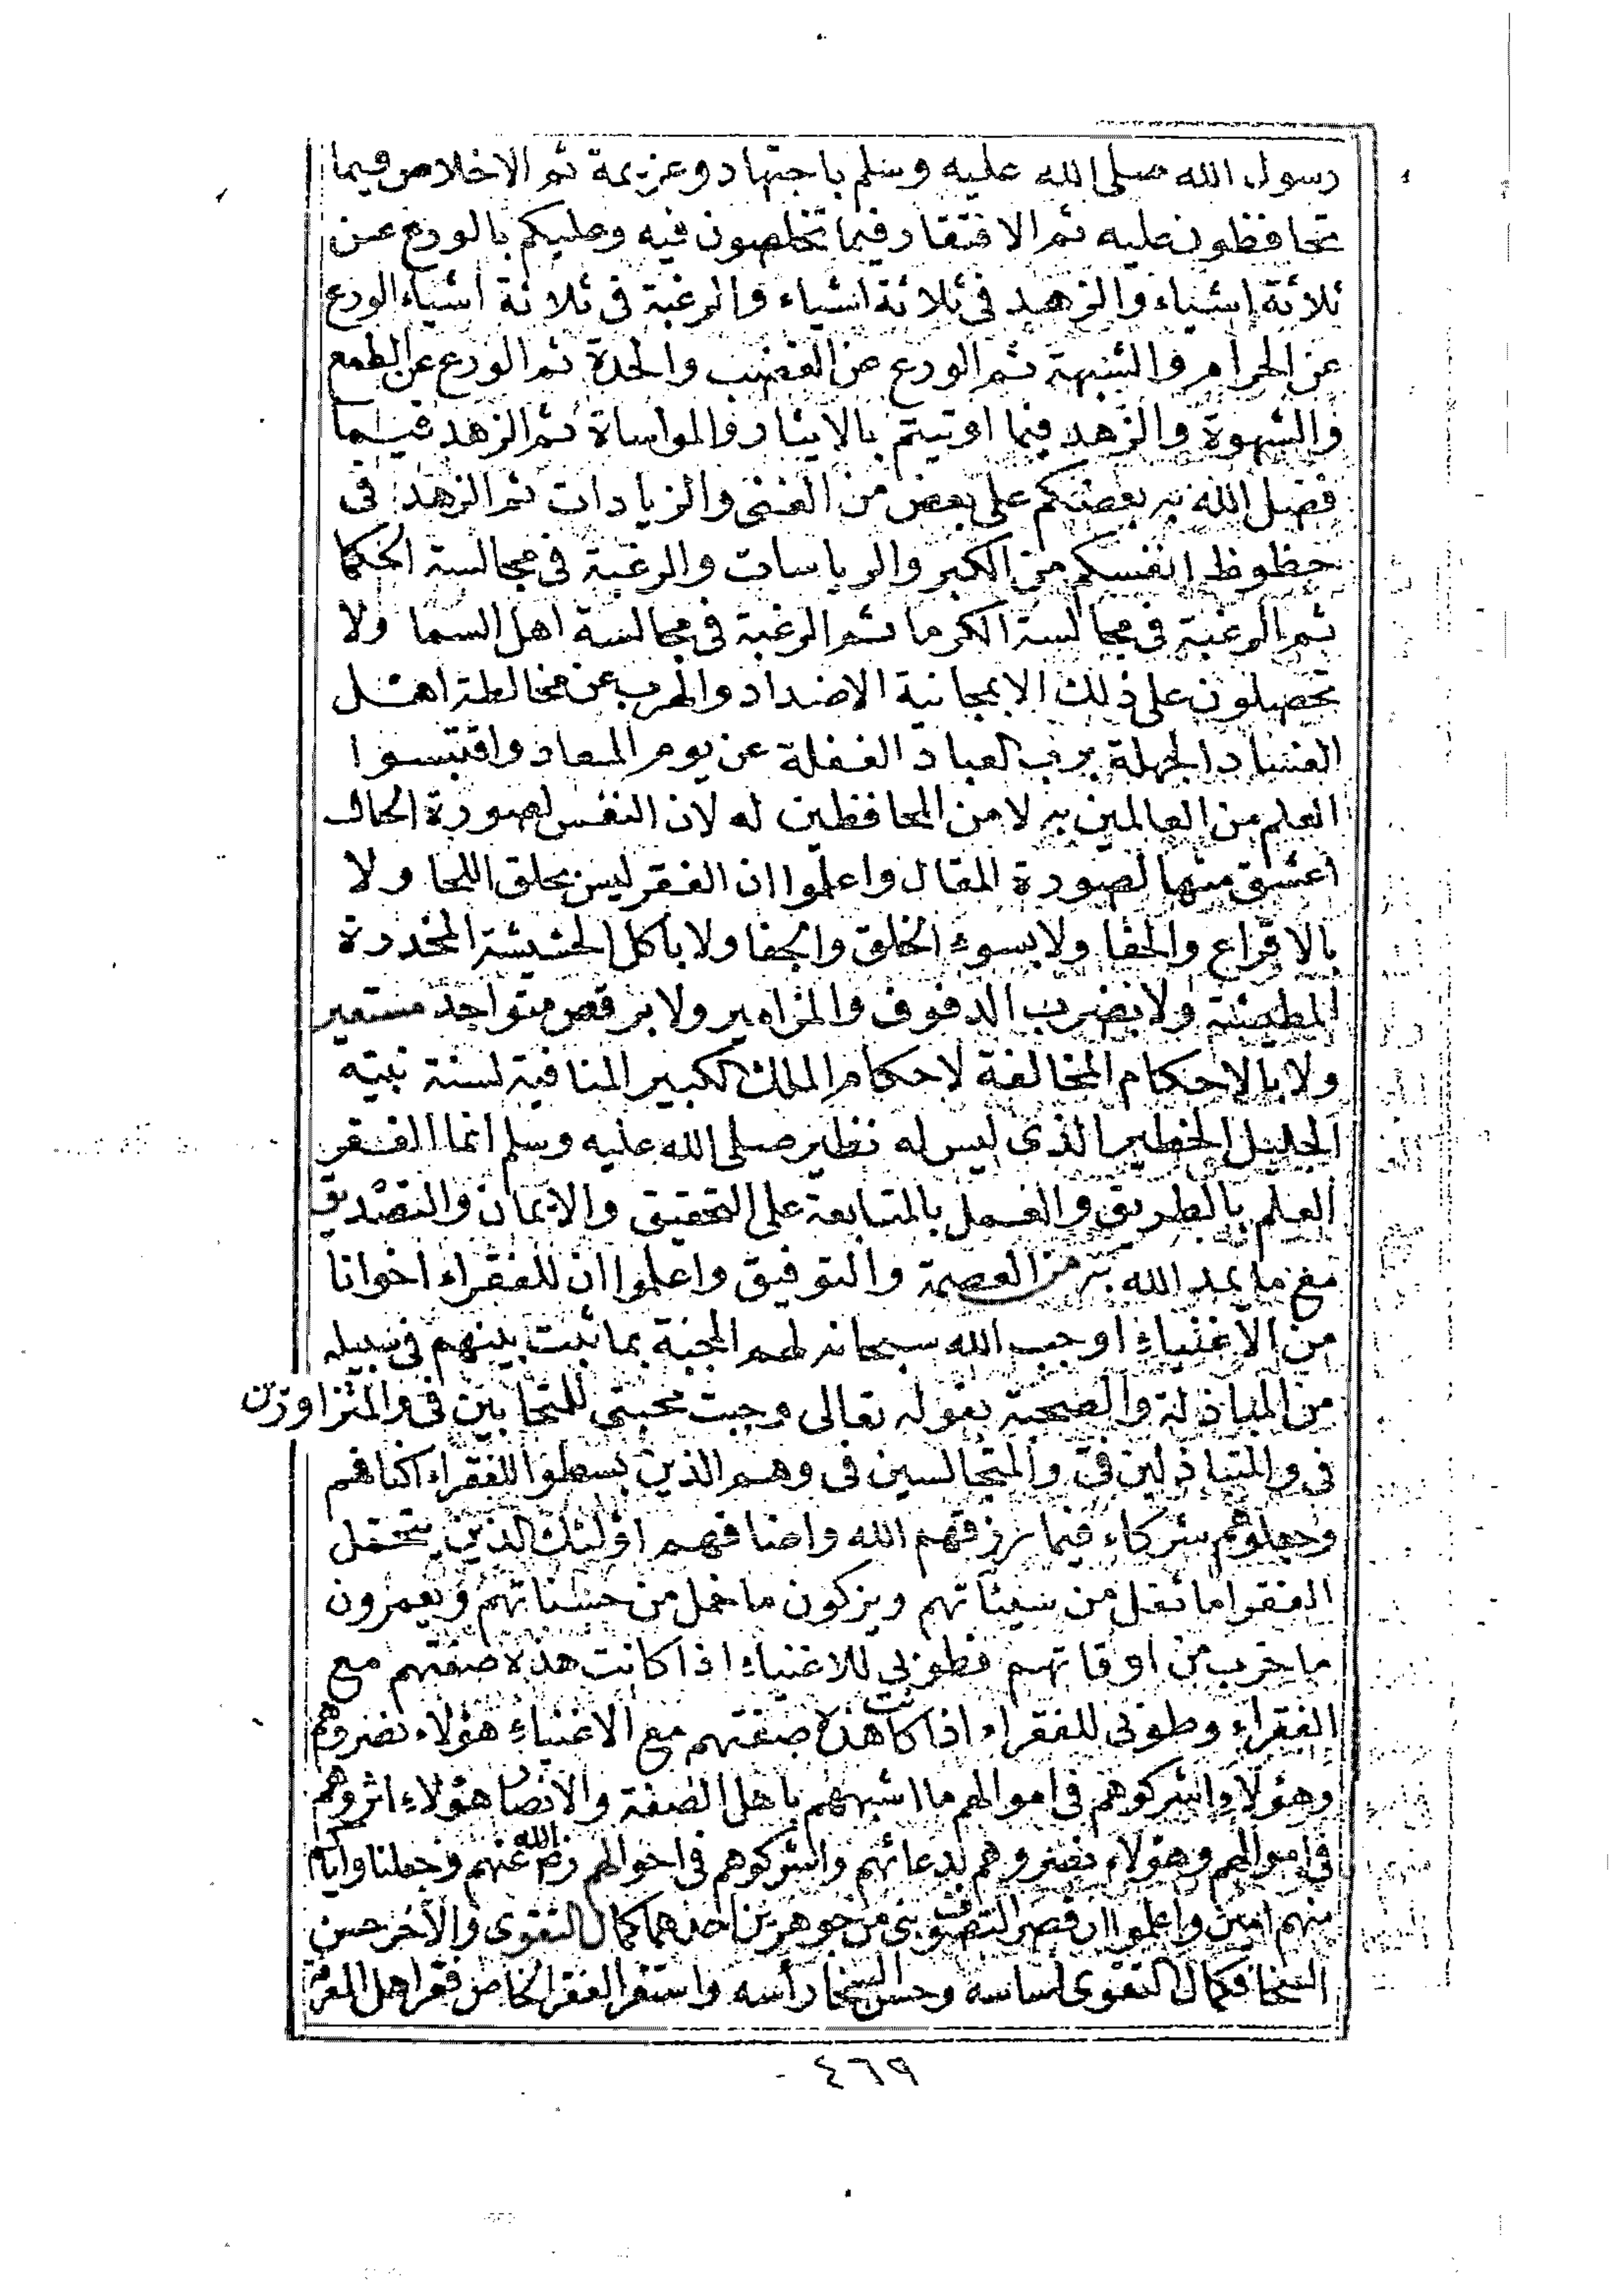 رسول الله صلى الله عليه وسلم باجتهاد وعزيمة ثم الاخلاص فيما
تحافظون عليه ثم الافتقار فيما تخلصون فيه وعليكم بالورع عن
ثلاثة اشياء والزهد في ثلاثة اشياء والرغبة في ثلاثة اشياء الورع
عن الحرام والشبهة ثم الورع عن الغضب والحدة ثم الورع عن الطمع
والشهوة والزهد فيما اوتيتم بالايثار والمواساة ثم الزهد فيما
فضل الله به بعضكم على بعض من الغنى والزيادات ثم الزهد في
حظوظ انفسكم من الكبر والرياسات والرغبة في مجالسة الحكما
ثم الرغبة في مجالسة الكرما ثم الرغبة في مجالسة اهل السما ولا
تحصلون على ذلك الا بمجانبة الاضداد والهرب عن مخالطة اهل
الفساد الجهلة برب العباد الغفلة عن يوم المعاد واقتبسوا
العلم من العالمين به لا من المحافظين له لان النفس لصورة الحال
اعشق منها لصورة المقال واعلموا ان الفقر ليس بحلق اللحا ولا
بالاقراع والحفا ولا بسوء الخلق والجفا ولا باكل الحشيشة المخدرة
ولا بضرب الدفوف والمزامير ولا برقص متواجد مستعير
ولا بالاحكام المخالفة لاحكام الملك الكبير المنافية لسنة نبيه
الجليل الخطير الذى ليس له نظير صلى الله عليه وسلم انما الفقر
العلم بالطريق والعمل بالمتابعة على التحقيق والايمان والتصديق
مع ما يمد الله به من العصمة والتوفيق واعلموا ان للفقراء اخوانا
من الاغنياء اوجب الله سبحانه لهم المحبة بما ثبت بينهم في سبيله
من المباذلة والصحبة بقوله تعالى وجبت محبتى للمتحابين في والمتزاورين
في والمتباذلين في والمتجالسين في وهم الذين بسطوا للفقراء اكنافهم
وجعلوهم شركاء فيما رزقهم الله واضافهم اولئك الذين يتحمل
الفقرا ما ثقل من سيئاتهم ويزكون ما خمل من حسناتهم ويعمرون
ما خرب من اوقاتهم فطوبى للاغنياء اذا كانت هذه صفتهم مع
الفقراء وطوبى للفقراء اذا كانت هذه صفتهم مع الاغنياء هؤلاء نصروهم
وهؤلاء اشركوهم في اموالهم ما اشبههم باهل الصفة والانصار هؤلاء اثروهم
في اموالهم وهؤلاء نصروهم بدعائهم واشركوهم في احوالهم رضي الله عنهم وجعلنا واياكم
منهم امين واعلموا ان قصر التصوف بنى من جوهرين احدهما كمال التقوى والآخر حسن
السخا فكمال التقوى اساسه وحسن السخا رأسه الفقر الخاص فقرا هل
٤٦٩